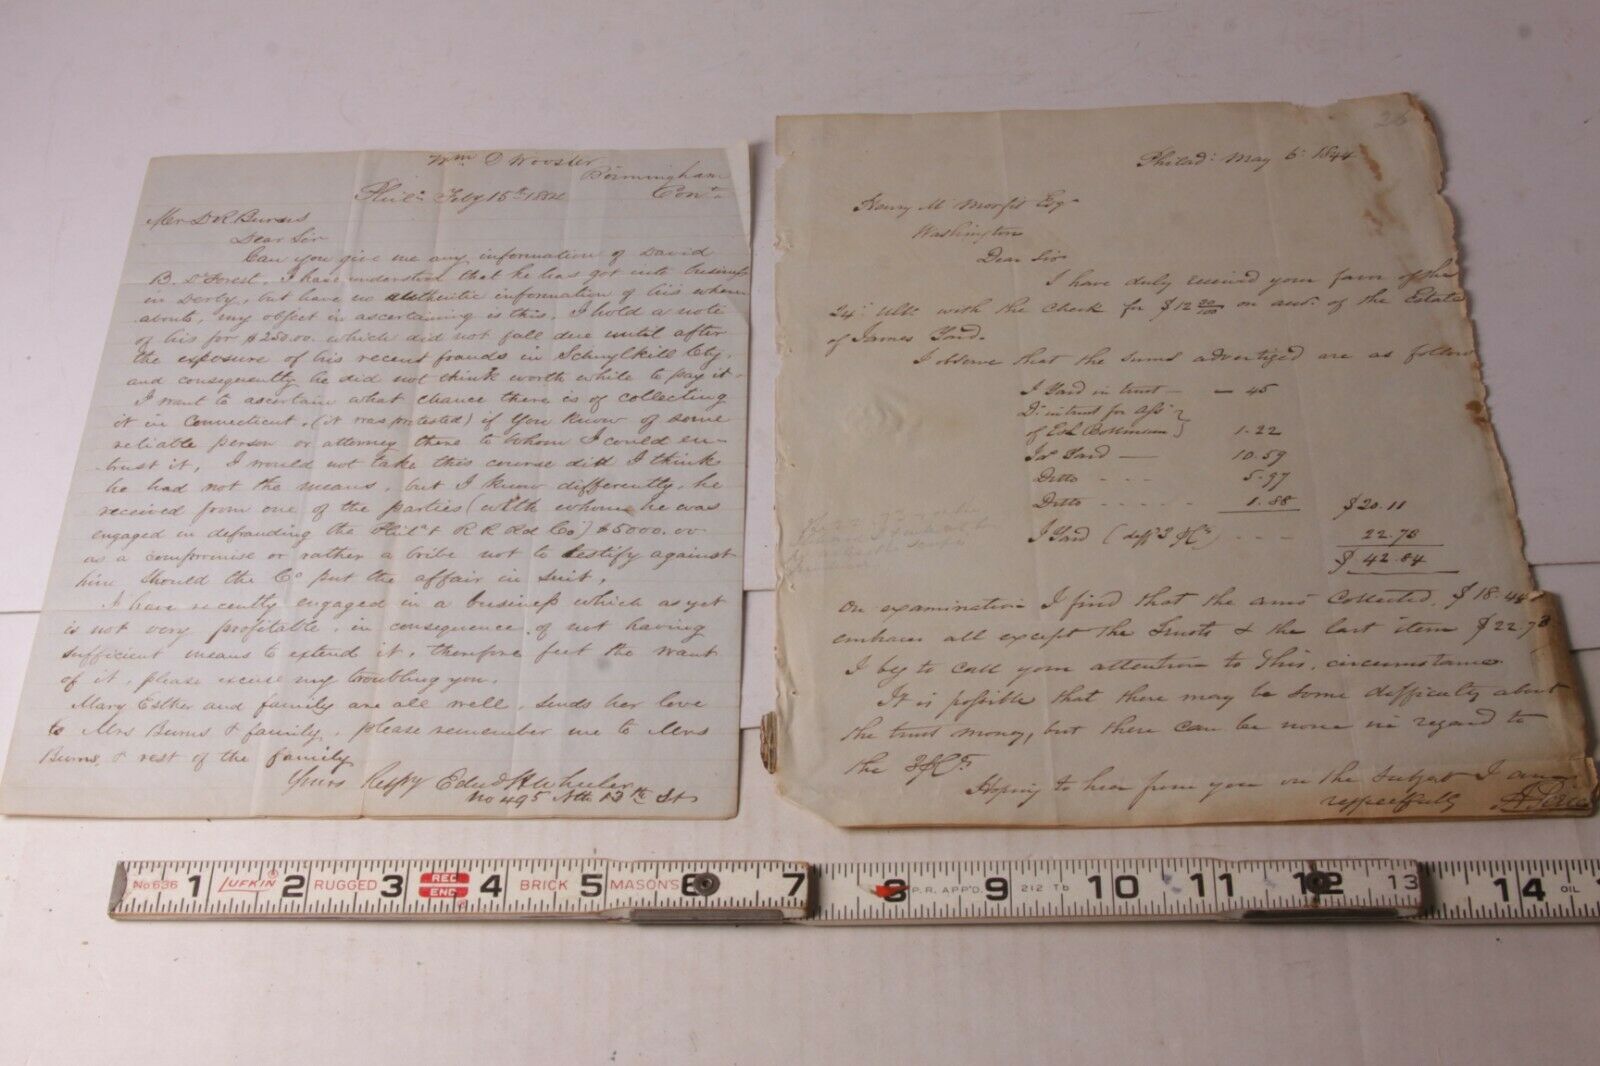 Wm D Wooster
Birmingham
Cont.
Phila Feby 15th
Mr D R Burns
Dear Sir
Can you give me any information of David
B. D Forest. I have understood that he has got into business
in Derby, but have no authentic information of his where
abouts, my object in ascertaining is this. I hold a note
of his for $250.00. which did not fall due until after
the exposure of his recent frauds in Schuylkill Cty,
and consequently he did not think worth while to pay it.
I want to ascertain what chance there is of collecting
it in Connecticut. (it was protested) if you know of some
reliable person or attorney there to whom I could en-
trust it, I would not take this course did I think
he had not the means, but I know differently. he
received from one of the parties (with whom he was
engaged in defrauding the Phila & R R Rd Co) $5000.00
as a compromise or rather a bribe not to testify against
him should the Co put the affair in suit.
I have recently engaged in a business which as yet
is not very profitable, in consequence of not having
sufficient means to extend it, therefore feel the want
of it, please excuse my troubling you.
Mary Esther and family are all well, sends her love
to Mrs Burns & family, please remember me to Mrs
Burns, & rest of the family
Yours Respy Edwd H Wheeler
No 495 Nth 13th St
26
Philada May 6. 1844
Henry M Morfit Esqr
Washington
Dear Sir
I have duly received your favor of the
24th Ulto. with the check for $12 on acct. of the Estate
of James Yard.
I observe that the sums advertized are as follow
J Yard in trust — — 45
Do in trust for
of 1.22
Jas Yard — 10.59
Ditto - - - 5.97
Ditto - - - - - 1.88 $20.11
J Yard ( ) - - - 22.73
$42.84
On examination I find that the amt collected, $18.44
embraces all except the Trusts & the last item $22.73
I beg to call your attention to this, circumstance
It is possible that there may be some difficulty about
the trust money, but there can be none in regard to
the
Hoping to hear from you on the subject I am
respectfully
No 636 1 LUFKIN 2 RUGGED 3 RED END 4 BRICK 5 MASON'S 6 7 8 P.R. APP'D. 9 212 Tb 10 11 12 13 14 OIL